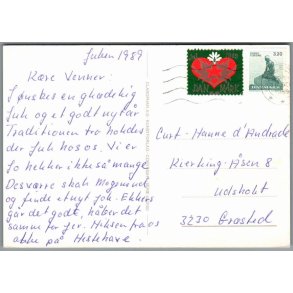 Julen 1989
Kære Venner!
I ønskes en glædelig
Jul og et godt nytår
Traditionen tro holdes
der Jul hos os. Vi er
jo heller ikke så mange
Desværre skal Mogmund
og finde et nyt job. Ellers
går det godt, håber det
samme for jer. Hilsen fra os
alle på Hestehave.
JUL 1989
DANMARK
320
Curt - Hanne d'Andrade
Kierking-Åsen 8
Udsholt
3230 Græsted